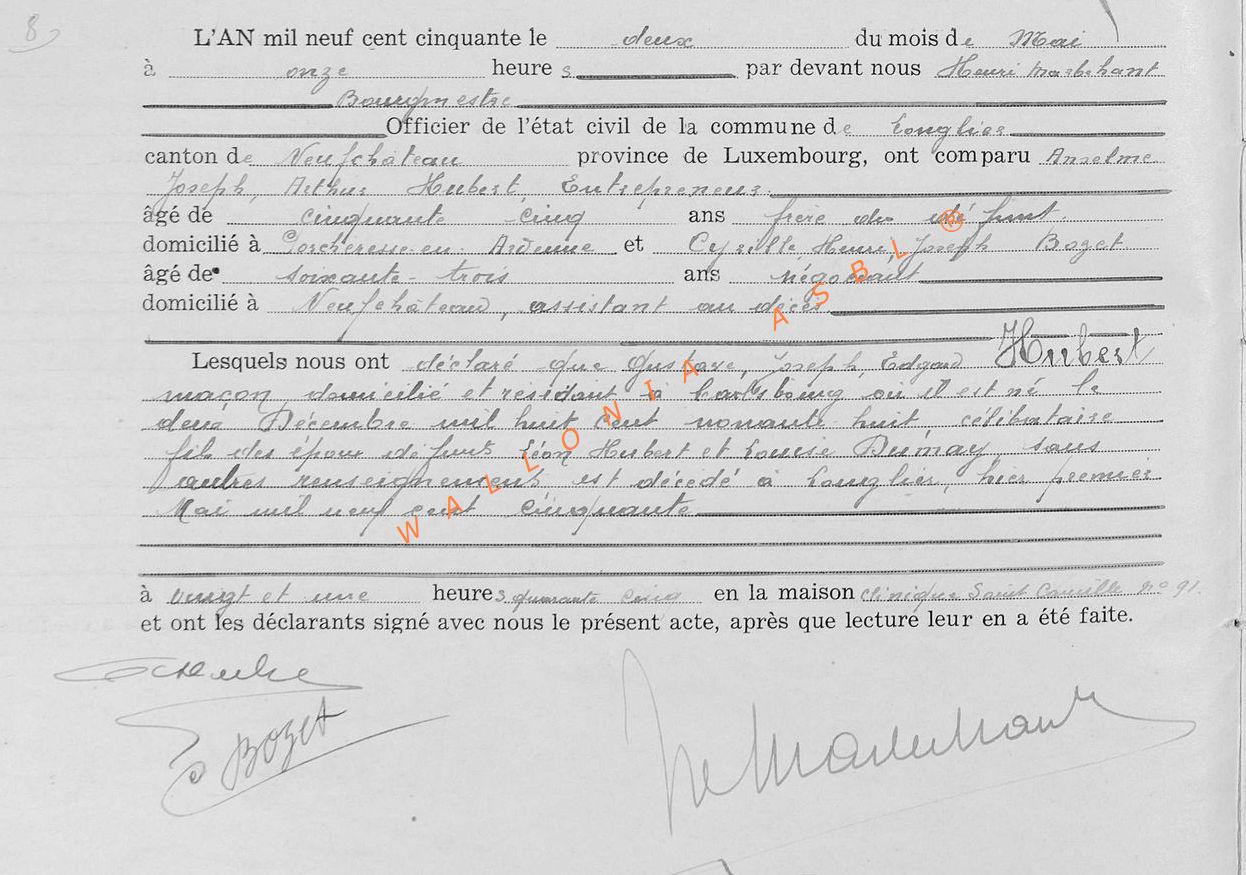 8)
L'AN mil neuf cent cinquante le deux du mois de Mai
à onze heures par devant nous Henri Marechant
Bourgmestre
Officier de l'état civil de la commune de Longlier
canton de Neufchâteau province de Luxembourg, ont comparu Anselme
Joseph, Arthur Hubert, Entrepreneur
âgé de cinquante cinq ans frère du défunt
domicilié à Porcheresse-en-Ardenne et Cyrille, Henri, Joseph Bozet
âgé de soixante-trois ans négociant
domicilié à Neufchâteau, assistant au décès
Lesquels nous ont déclaré que Gustave, Joseph, Edgard Hubert
maçon, domicilié et résidant à Carlsbourg où il est né le
deux Décembre mil huit cent nonante huit, célibataire
fils des époux défunts Léon Hubert et Louise Dumay, sans
autres renseignements est décédé à Longlier, hier premier
Mai mil neuf cent cinquante
à vingt et une heures quarante cinq en la maison Clinique Saint Camille n° 91.
et ont les déclarants signé avec nous le présent acte, après que lecture leur en a été faite.
Bozet
WALLONIA ASBL ®